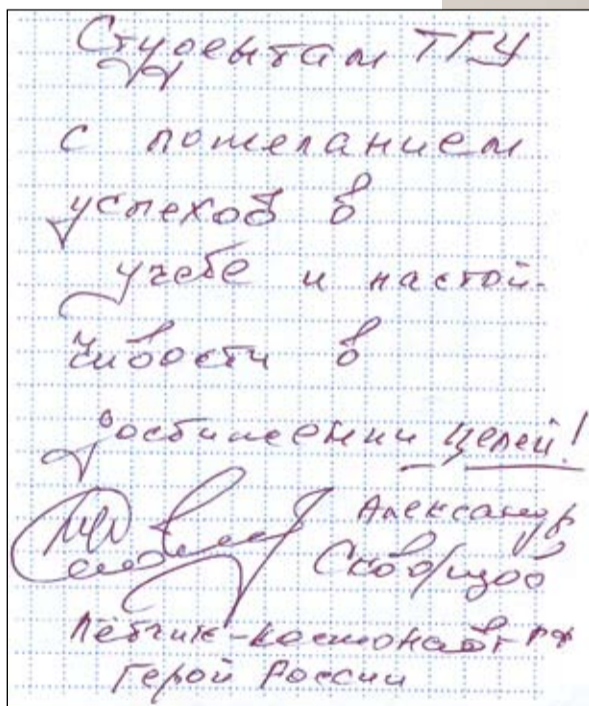 Студентам ТГУ
с пожеланием
успехов в
учебе и настой-
чивости в
достижении целей!
Александр
Скворцов
Лётчик-космонавт РФ
Герой России